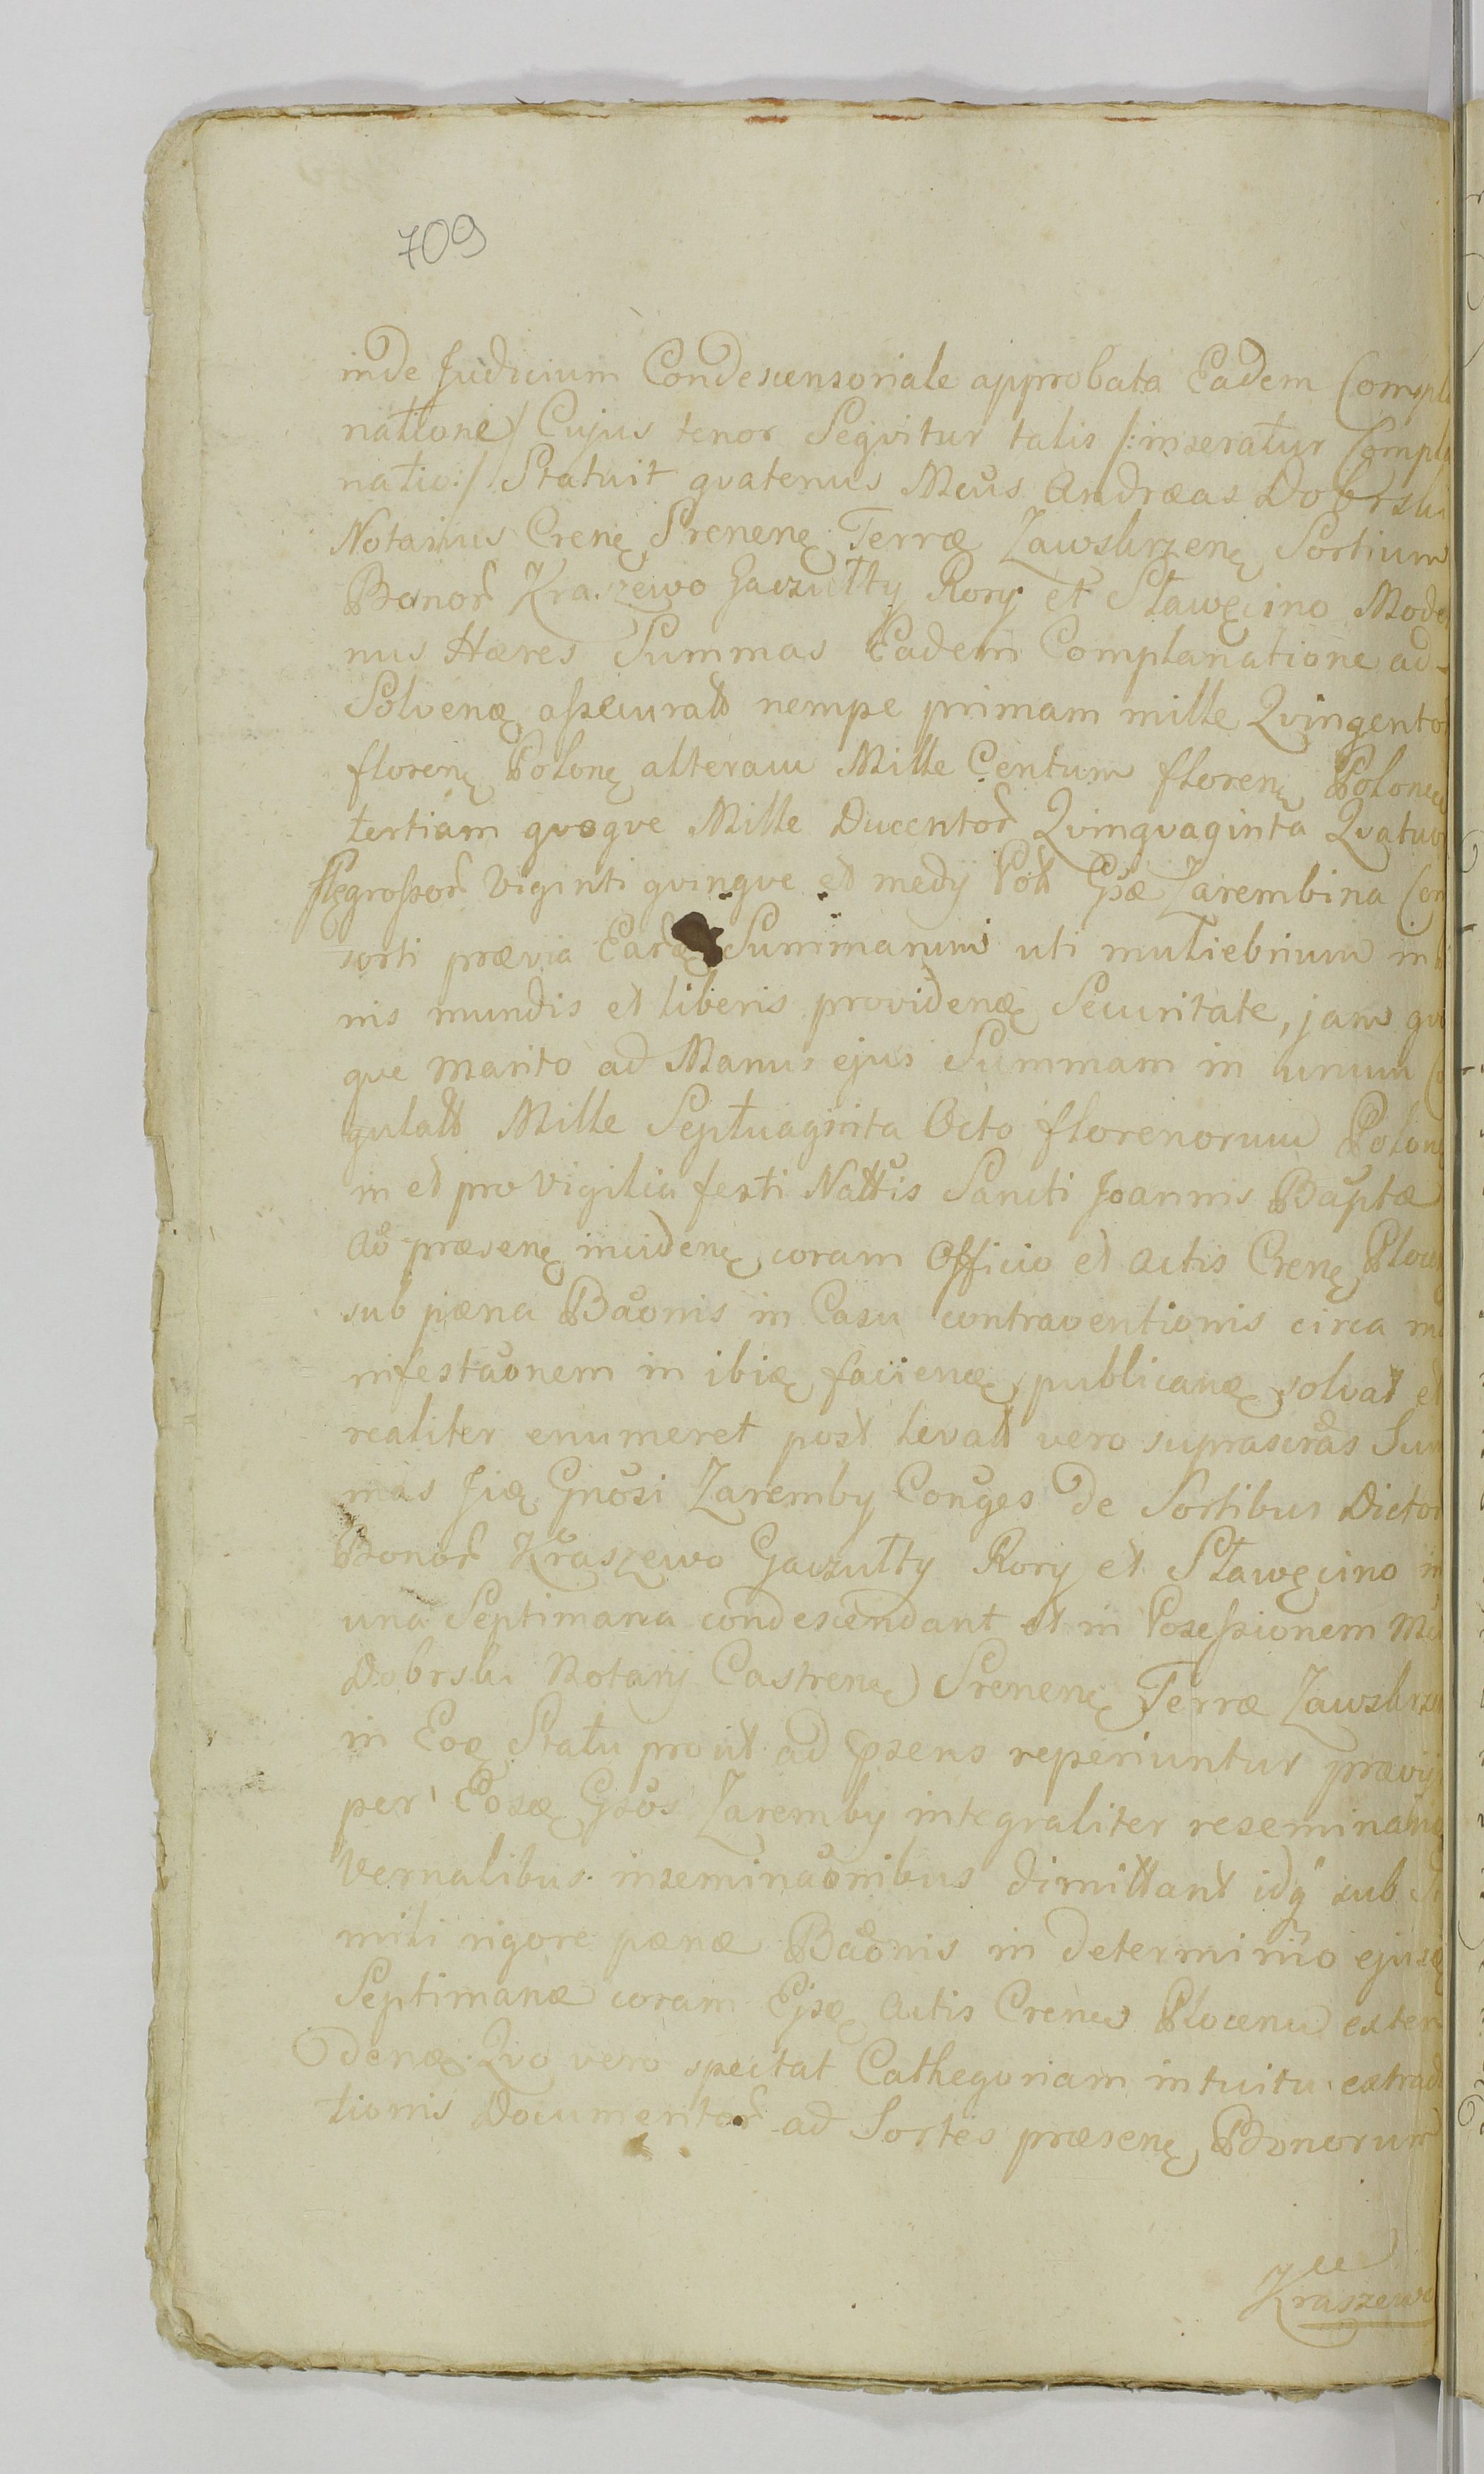 709
inde Judicium Condescensoriale approbata Eadem Compla
natione/ Cujus tenor Seqvitur talis /:inseratur Compla
natio:/ Statuit qvatenus Mcus Andræas Dobrski
Notarius Crenę Srenenę Terræ Zawskrzenę Sortium
Bonor Kraszewo Gaczułty Rory et Sławęcino Moder
nus Hæres Summas Eadem Complanatione ad
Solvenę assecurat nempe primam mille Qvingentor
florenę Polonę alteram Mille Centum florenę Polone
tertiam qvoqve Mille Ducentor Qvinqvaginta Qvatuor
flęgrossor Viginti qvinqve et medij Pot Gsæ Zarembina Con
sorti prævia Earę Summarum uti muliebrium in
nis mundis et liberis providenę Securitate, jam qvo
qve marito ad Manus ejus Summam in unum
gulatt Mille Septuaginta Octo florenorum Polonę
in et pro Vigilia festi Nattis Sancti Joannis Baptæ
Ao præsenę incidenę coram Officio et Actis Crenę Plocen
sub pæna Baonis in Casu contraventionis circa ma
nifestaonem in ibię facienę publicanę solvat et
realiter enumeret post levatt vero suprascras Sum
mas Jię Gnosi Zaremby Conges de Sortibus Dictor
Bonor Kraszewo Gaczułty Rory et Sławęcino in
una Septimana condescendant et in Possessionem Mci
Dobrski Notarij Castrenę Srenenę Terræ Zawskrzen
in Eoę Statu prout ad psens reperiuntur prævijs
per Eosę Gsos Zaremby integraliter reseminatis
Vernalibus inseminaonibus dimittant idq sub si
mili rigore pænæ Baonis in determinio ejusę
Septimanæ coram Ejsę Actis Crenę Plocenę exten
denę. Qvo vero spectat Cathegoriam intuitu extradi
tionis Documentor ad Sortes præsenę Bonorum
Kraszewo